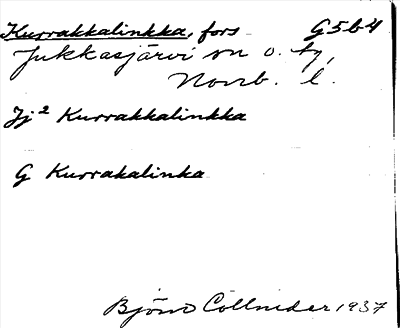 Kurrakkalinkka, fors G5b4
Jukkasjärvi sn o. tg,
Norrb. l.
Jj² Kurrakkalinkka
G Kurrakalinka
Björn Collinder 1937